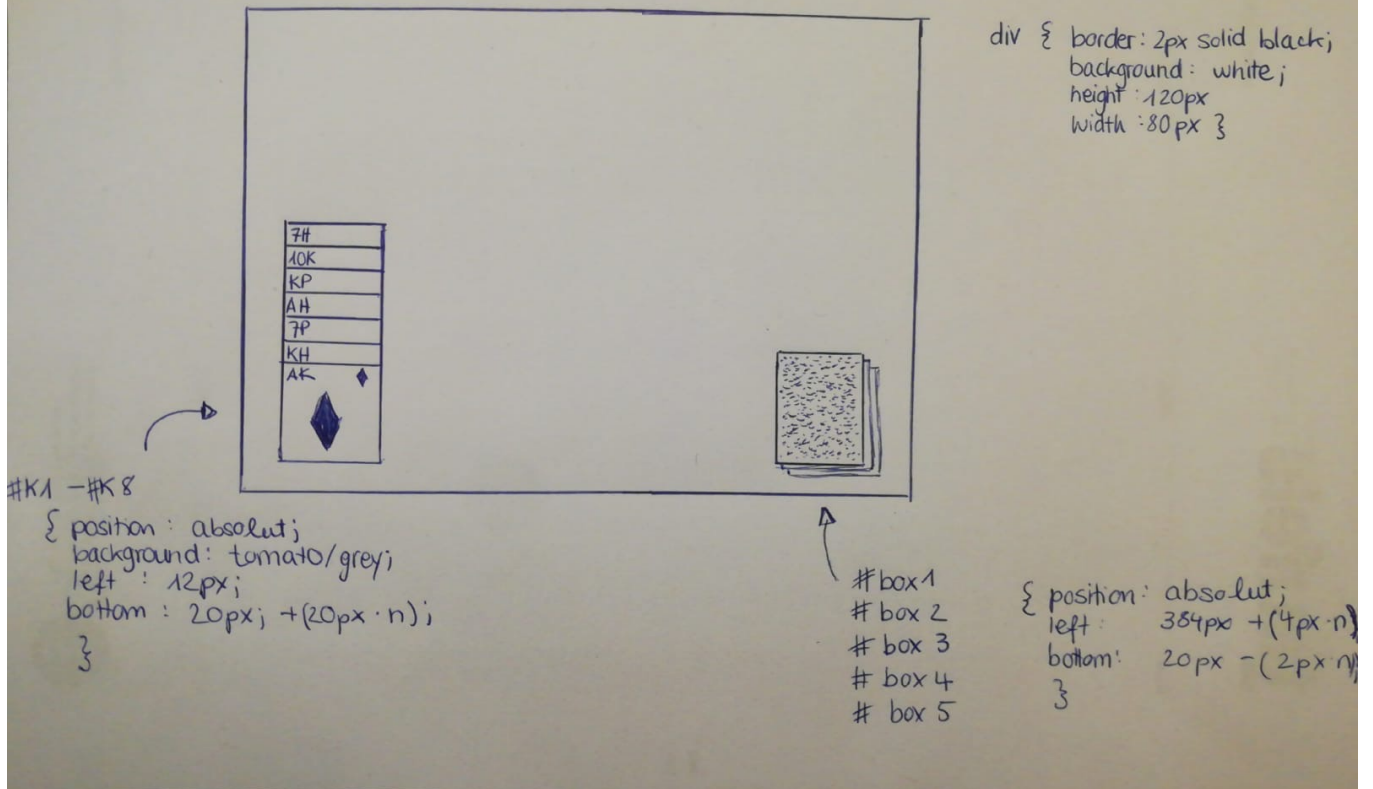 div { border: 2px solid black;
background: white;
height: 120px
width: 80px }
7H
10K
KP
AH
7P
KH
AK
#K1 - #K8
{ position: absolut;
background: tomato/grey;
left : 12px;
bottom : 20px; +(20px · n);
}
#box1
#box 2
# box 3
# box 4
# box 5
{ position: absolut;
left: 384px +(4px·n)
bottom: 20px -(2px·n);
}